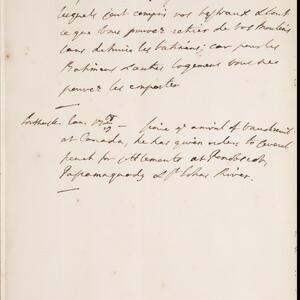 lesquels sont compris vos bestiaux d'dont
ce que vous pouvez retirer de vos moulins
sans detruire les batimens; car pour les
Batimens & autres logemens vous ne
pouvez les emporter
Jan. 17
Since yr arrival of Vaudreuil
at Canada, he has given orders to Covert
for settlements at Penobscot,
Passamaquody & St Johns River.